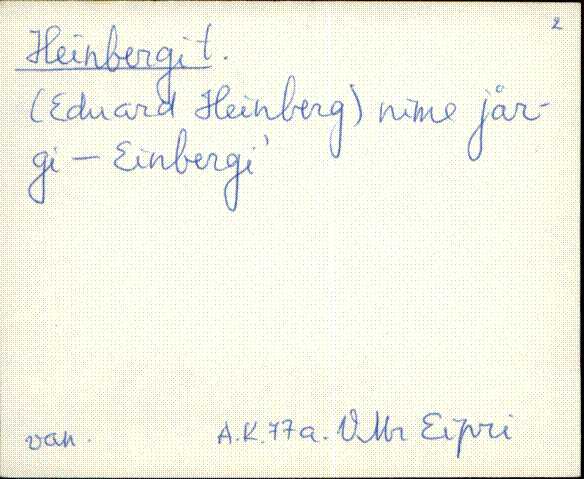 2
Heinbergi t.
(Eduard Heinberg) nime jär-
gi — Einbergi'
van. A.K. 77 a. VMr Eipri